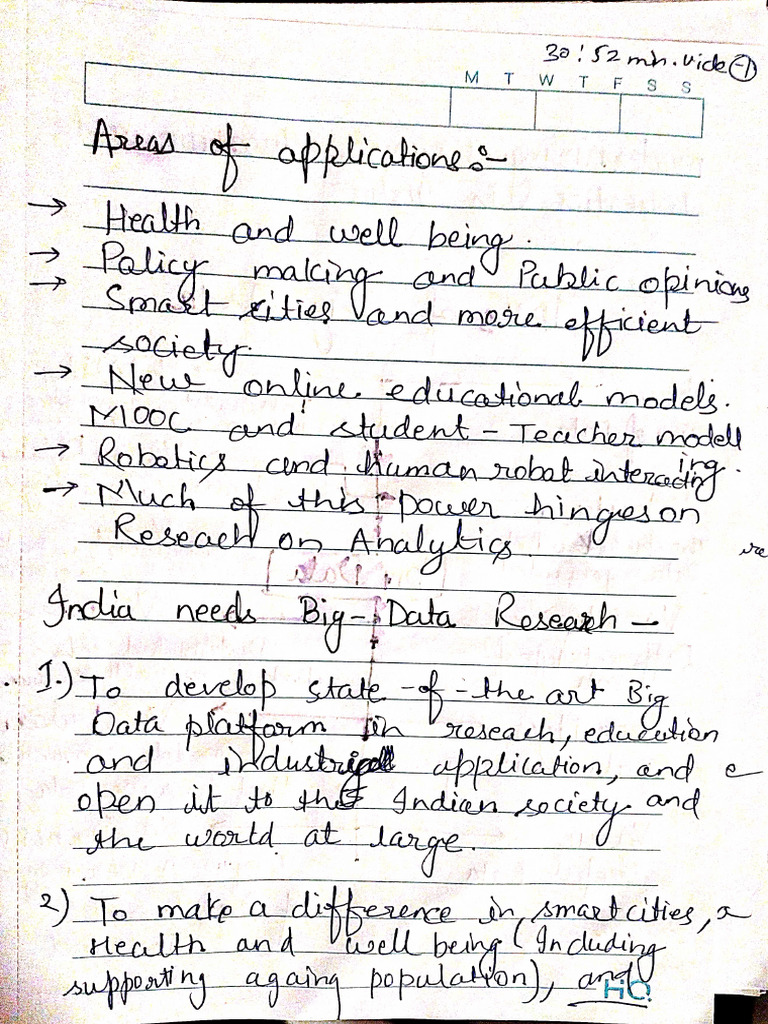 30:52 min. vide -1
M T W T F S S
Areas of applications:-
→ Health and well being.
→ Policy making and Public opinions
→ Smart cities and more efficient
society.
→ New online educational models.
MOOC and student - Teacher modell
ing.
→ Robotics and human robot interacting
→ Much of this power hinges on
Reseach on Analytics.
India needs Big-Data Research -
1.) To develop state-of-the art Big
Data platform in reseach, education
and industrial application, and
open it to the Indian society and
the world at large.
2) To make a difference in smart cities,
Health and well being (Including
supporting againg population), and
HQ